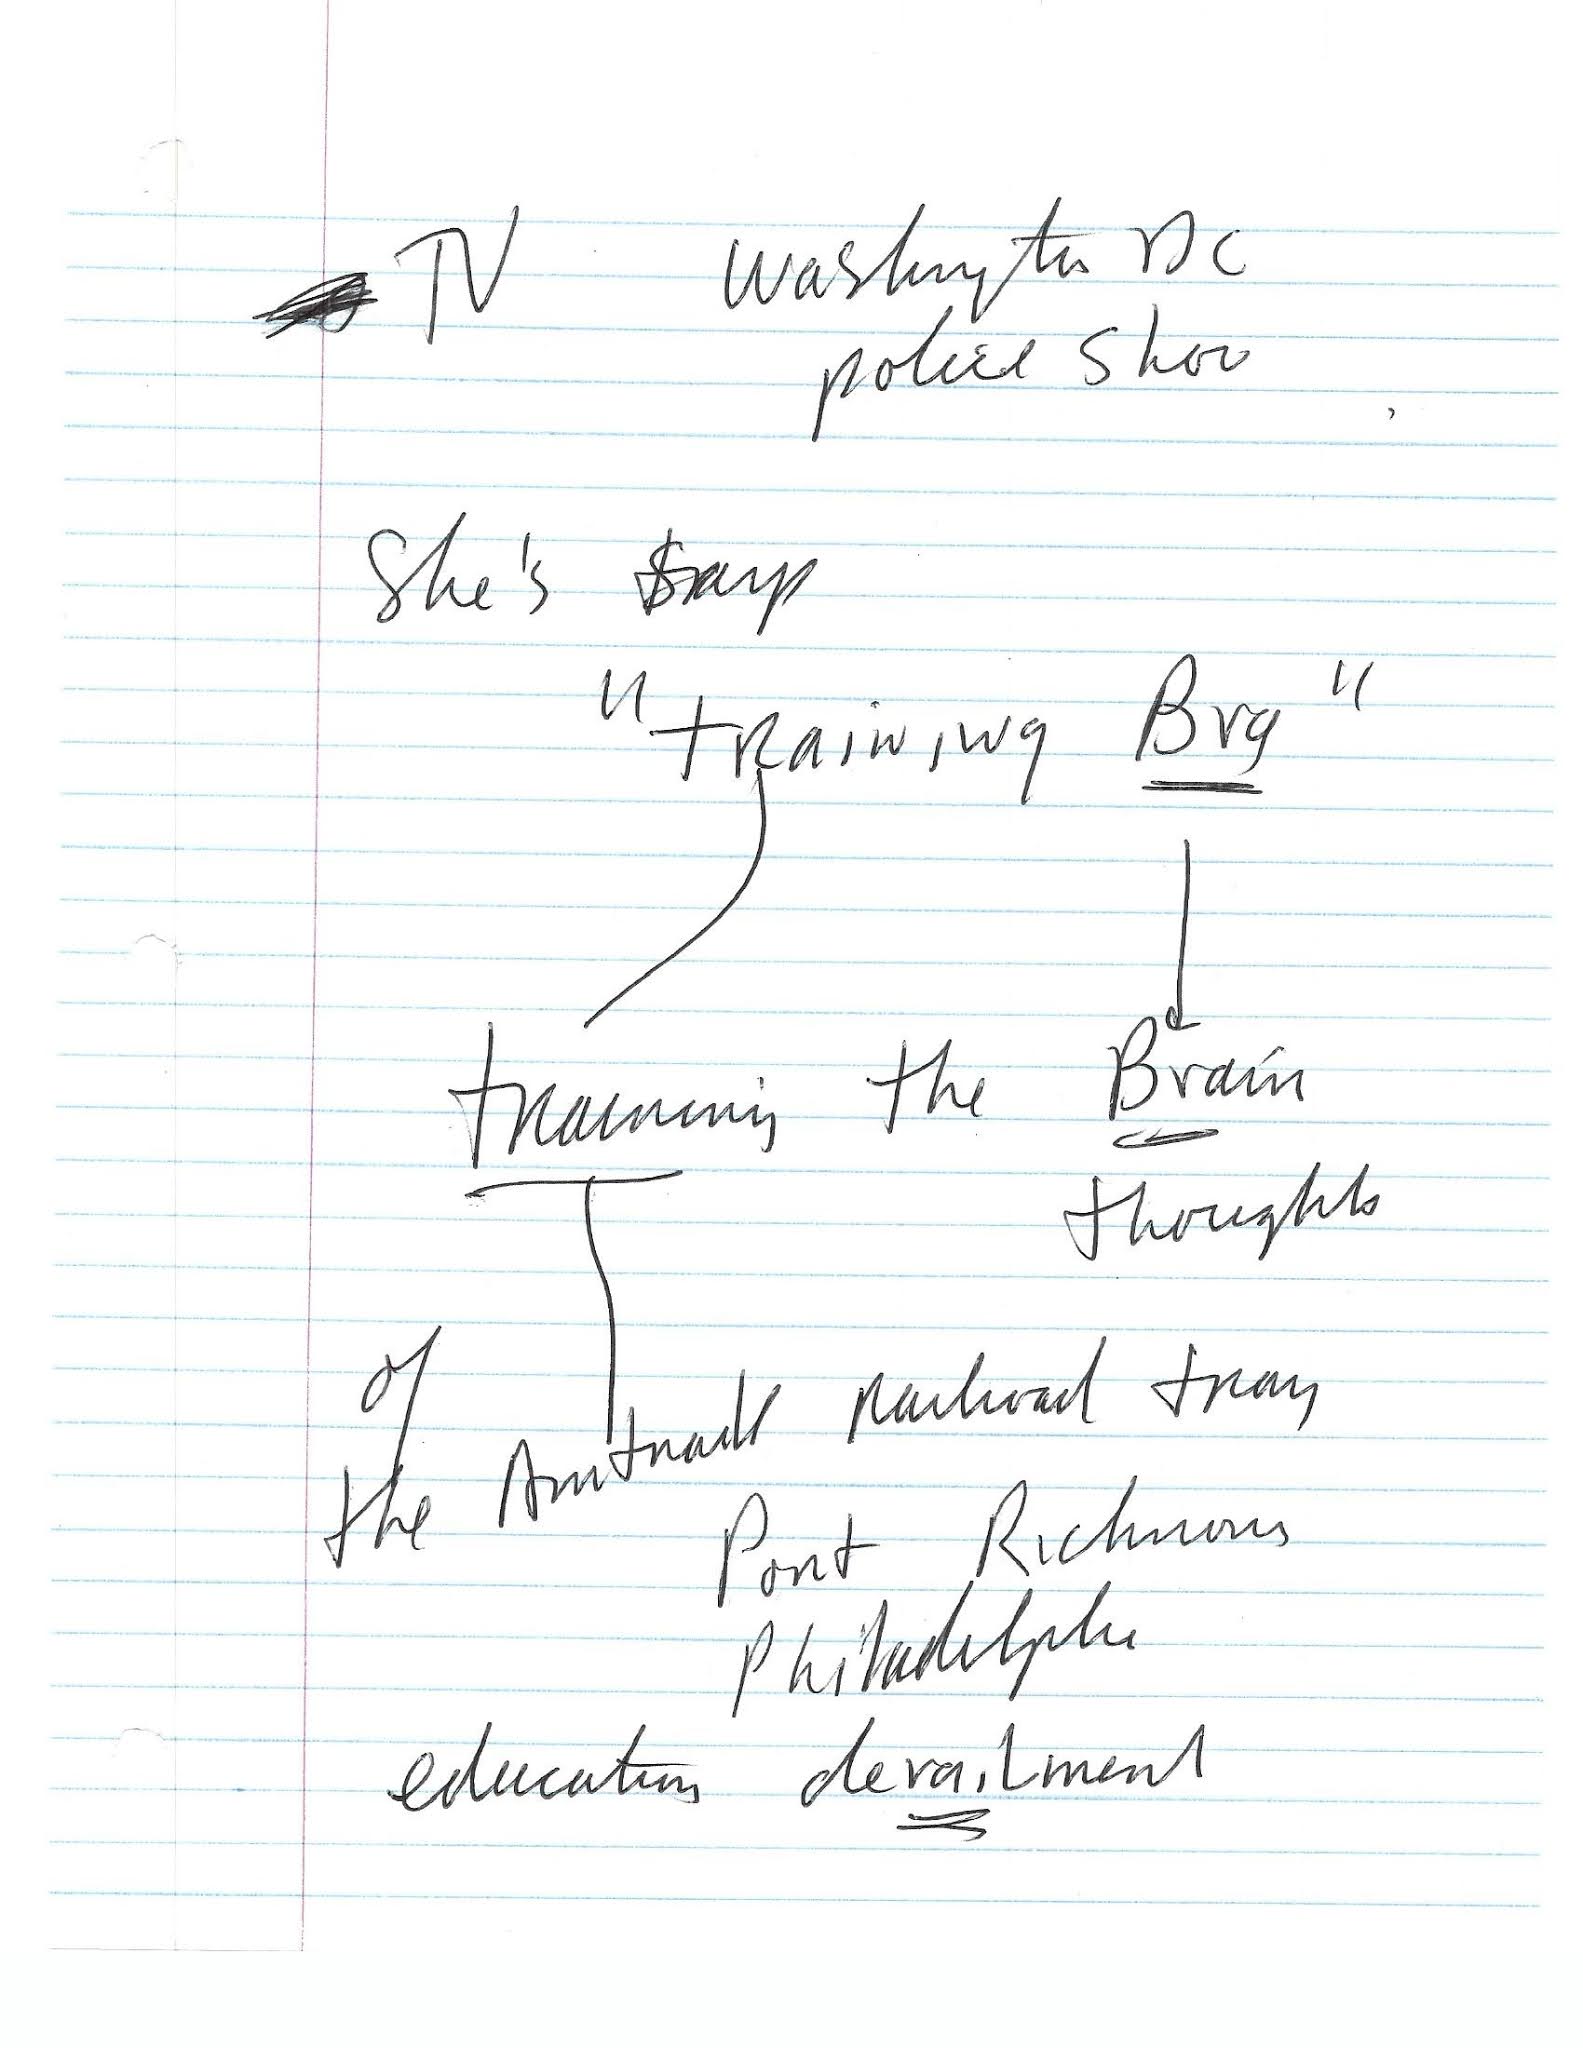 TV Washington DC
police Show
She's says
"training Bra"
training the Brain
thoughts
of
the Amtrack Railroad
Port Richmond
Philadelphia
education derailment